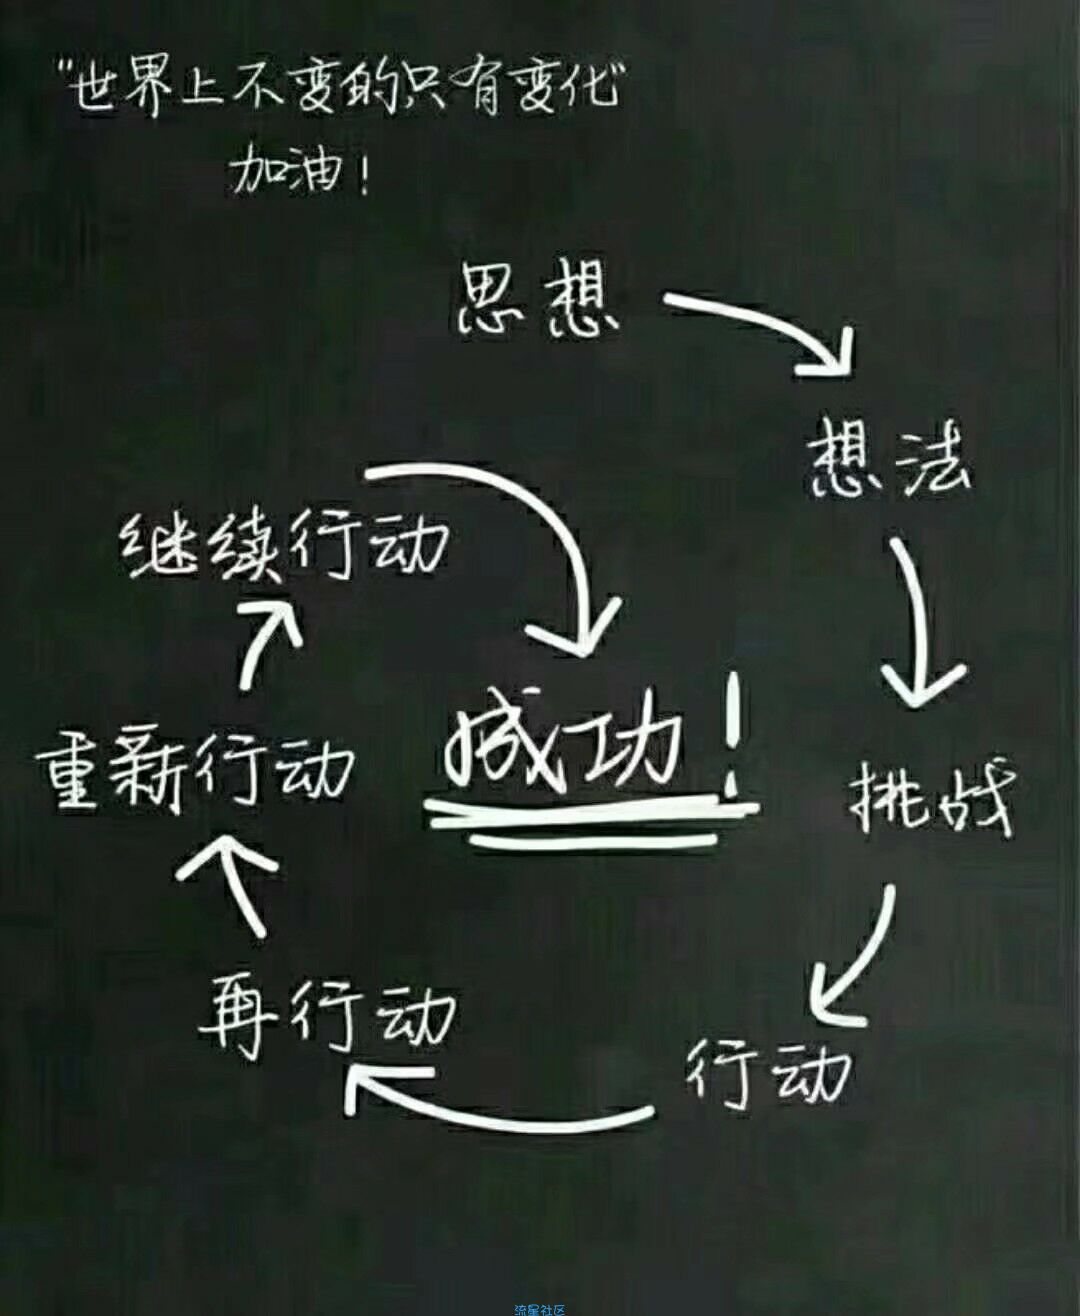 "世界上不变的只有变化"
加油！
思想
想法
挑战
行动
再行动
重新行动
继续行动
成功！
流星社区